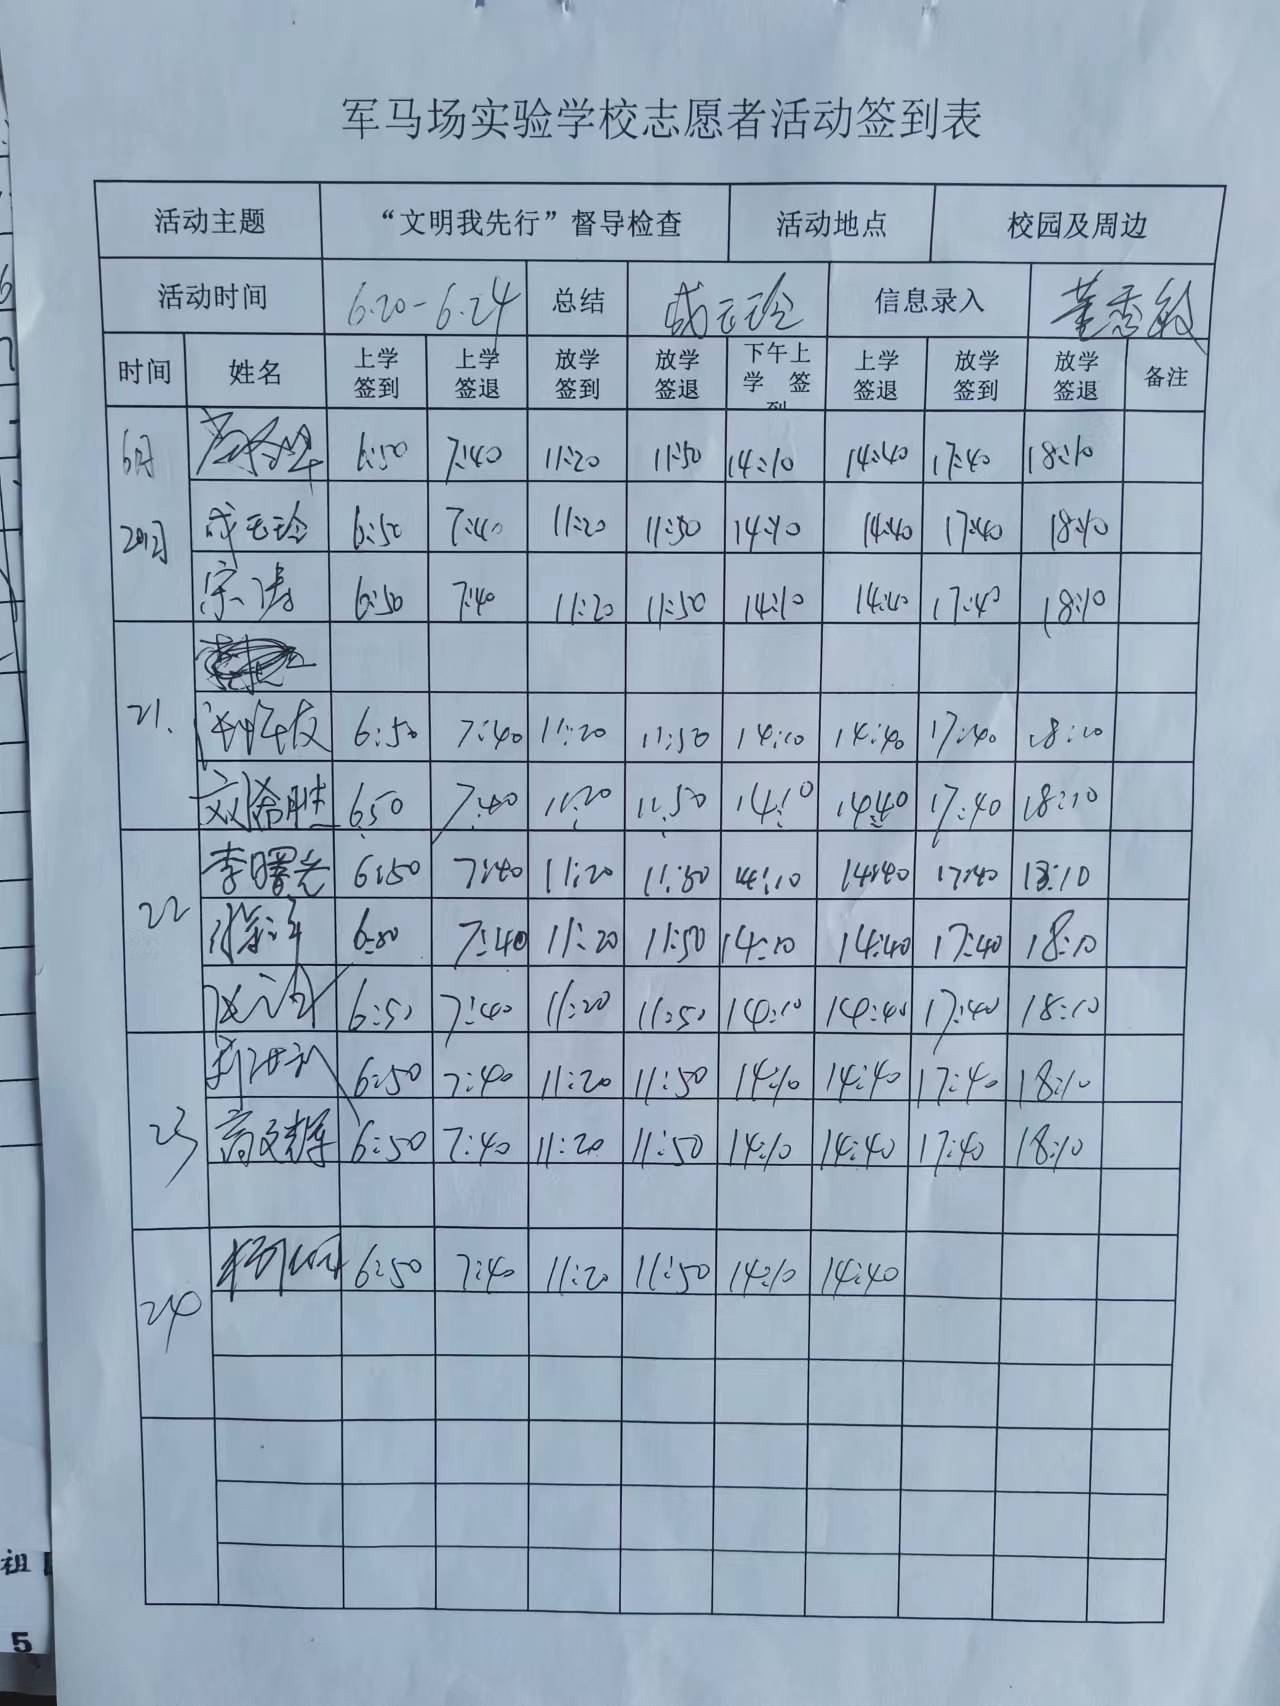 军马场实验学校志愿者活动签到表
活动主题 “文明我先行”督导检查 活动地点 校园及周边
活动时间 6.20-6.24 总结 成玉玲 信息录入 董秀敏
时间 姓名 上学签到 上学签退 放学签到 放学签退 下午上学签到 上学签退 放学签到 放学签退 备注
6月20日 6:50 7:40 11:20 11:50 14:10 14:40 17:40 18:10
成玉玲 6:50 7:40 11:20 11:50 14:10 14:40 17:40 18:10
宗涛 6:50 7:40 11:20 11:50 14:10 14:40 17:40 18:10
21.
6:50 7:40 11:20 11:50 14:10 14:40 17:40 18:10
刘希胜 6:50 7:40 11:20 11:50 14:10 14:40 17:40 18:10
22 李曙光 6:50 7:40 11:20 11:50 14:10 14:40 17:40 18:10
6:50 7:40 11:20 11:50 14:10 14:40 17:40 18:10
6:50 7:40 11:20 11:50 14:10 14:40 17:40 18:10
23 6:50 7:40 11:20 11:50 14:10 14:40 17:40 18:10
高文辉 6:50 7:40 11:20 11:50 14:10 14:40 17:40 18:10
24 6:50 7:40 11:20 11:50 14:10 14:40
祖
5